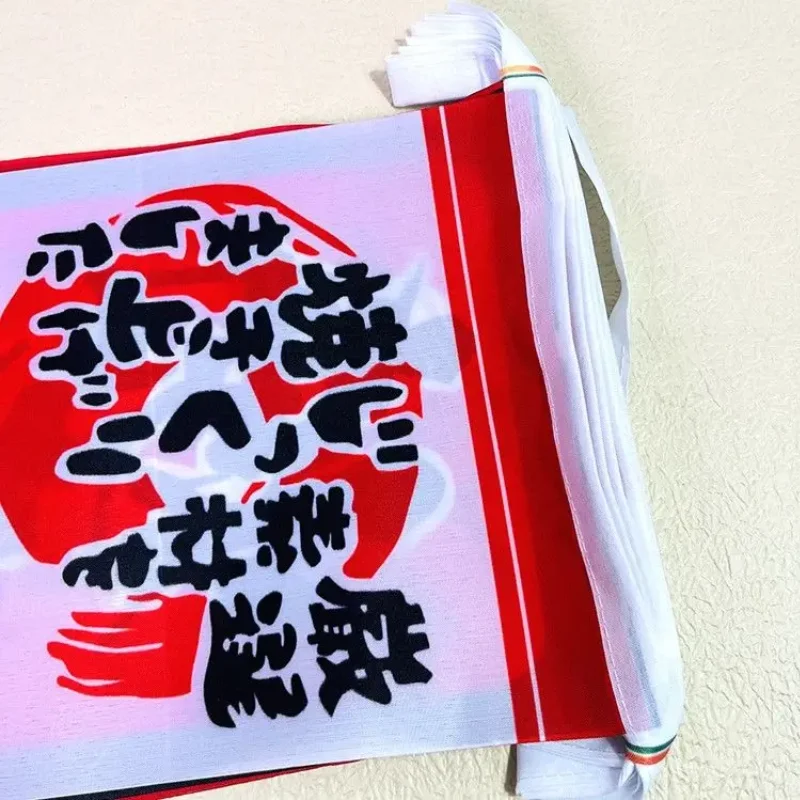 厳選
素材を
じっくり
焼き上げ
ました